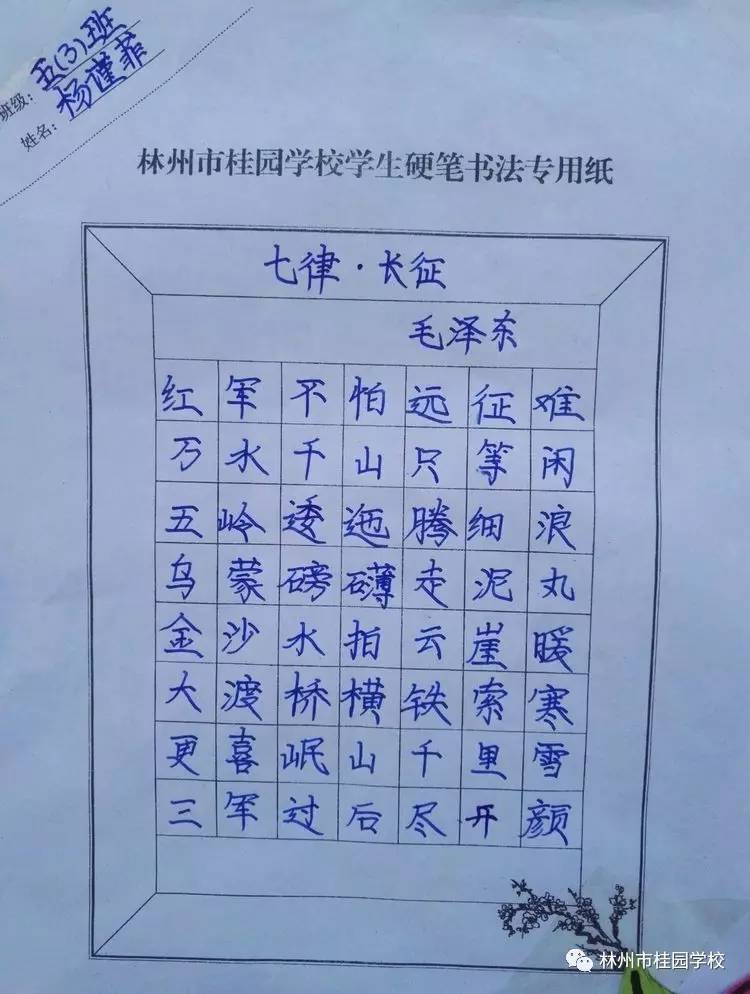 班级：五(3)班
姓名：杨瑾菲
林州市桂园学校学生硬笔书法专用纸
七律·长征
毛泽东
红军不怕远征难
万水千山只等闲
五岭逶迤腾细浪
乌蒙磅礴走泥丸
金沙水拍云崖暖
大渡桥横铁索寒
更喜岷山千里雪
三军过后尽开颜
林州市桂园学校